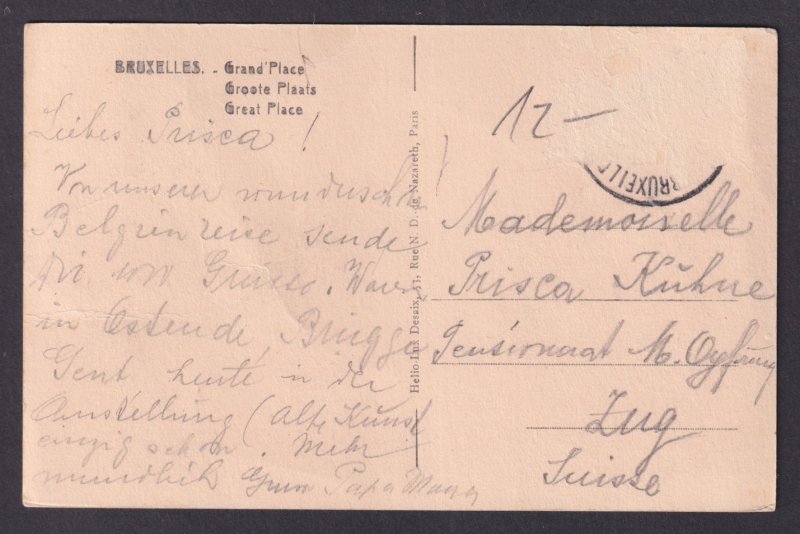 BRUXELLES. - Grand'Place
Groote Plaats
Great Place
Liebes Prisca!
Von unserer wunderschö
Belgienreise sende
Dir Grüsse. Waren
in Ostende, Brügge
Gent heute in der
Ausstellung (alte Kunst
einzig schön. Mehr
mundlich Gruss Papa Mama
Helio-Lux Desaix, 33, Rue N. D. de Nazareth, Paris
12 —
BRUXELL
Mademoiselle
Prisca Kühne
Pensionnat M.
Zug
Suisse